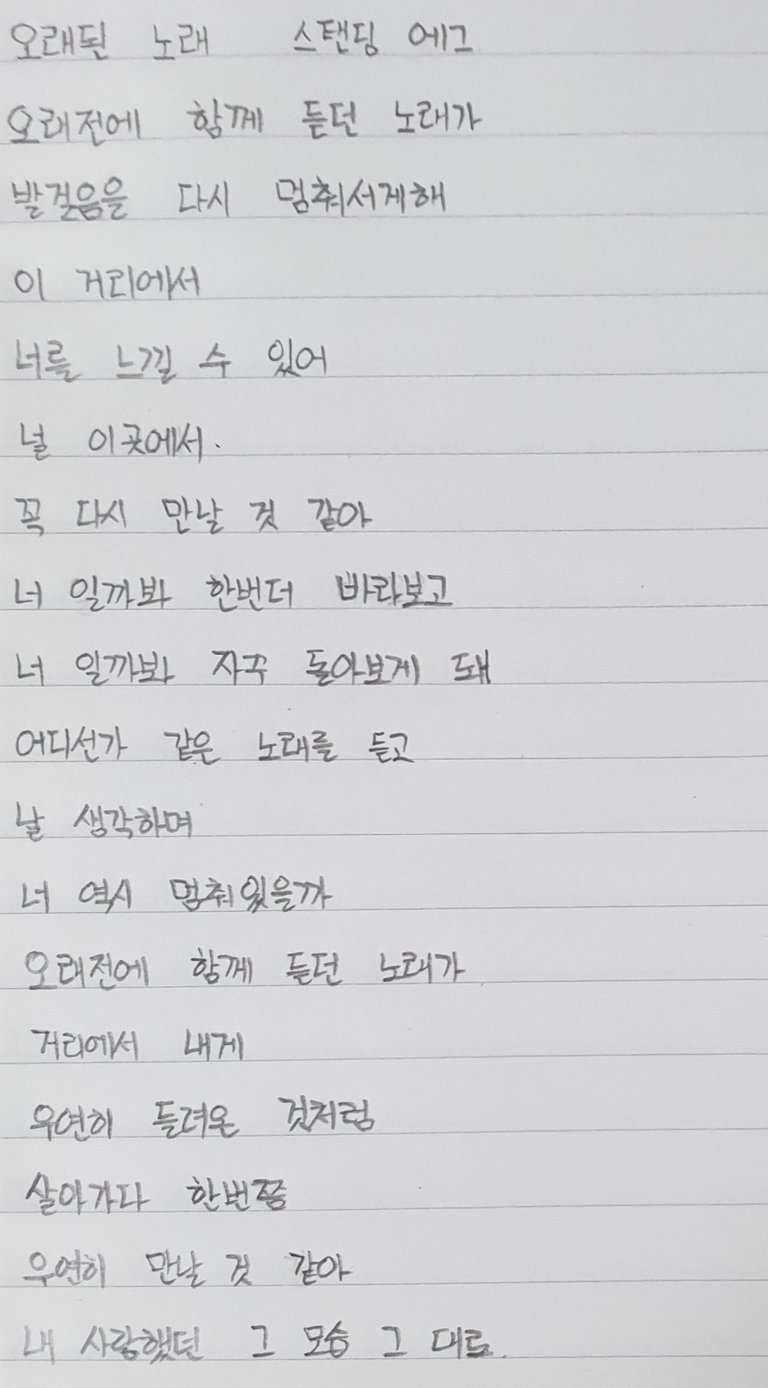 오래된 노래 스탠딩 에그
오래전에 함께 듣던 노래가
발걸음을 다시 멈춰서게해
이 거리에서
너를 느낄 수 있어
널 이곳에서.
꼭 다시 만날 것 같아
너 일까봐 한번더 바라보고
너 일까봐 자꾸 돌아보게 돼
어디선가 같은 노래를 듣고
날 생각하며
너 역시 멈춰있을까
오래전에 함께 듣던 노래가
거리에서 내게
우연히 들려온 것처럼
살아가다 한번쯤
우연히 만날 것 같아
내 사랑했던 그 모습 그 대로.